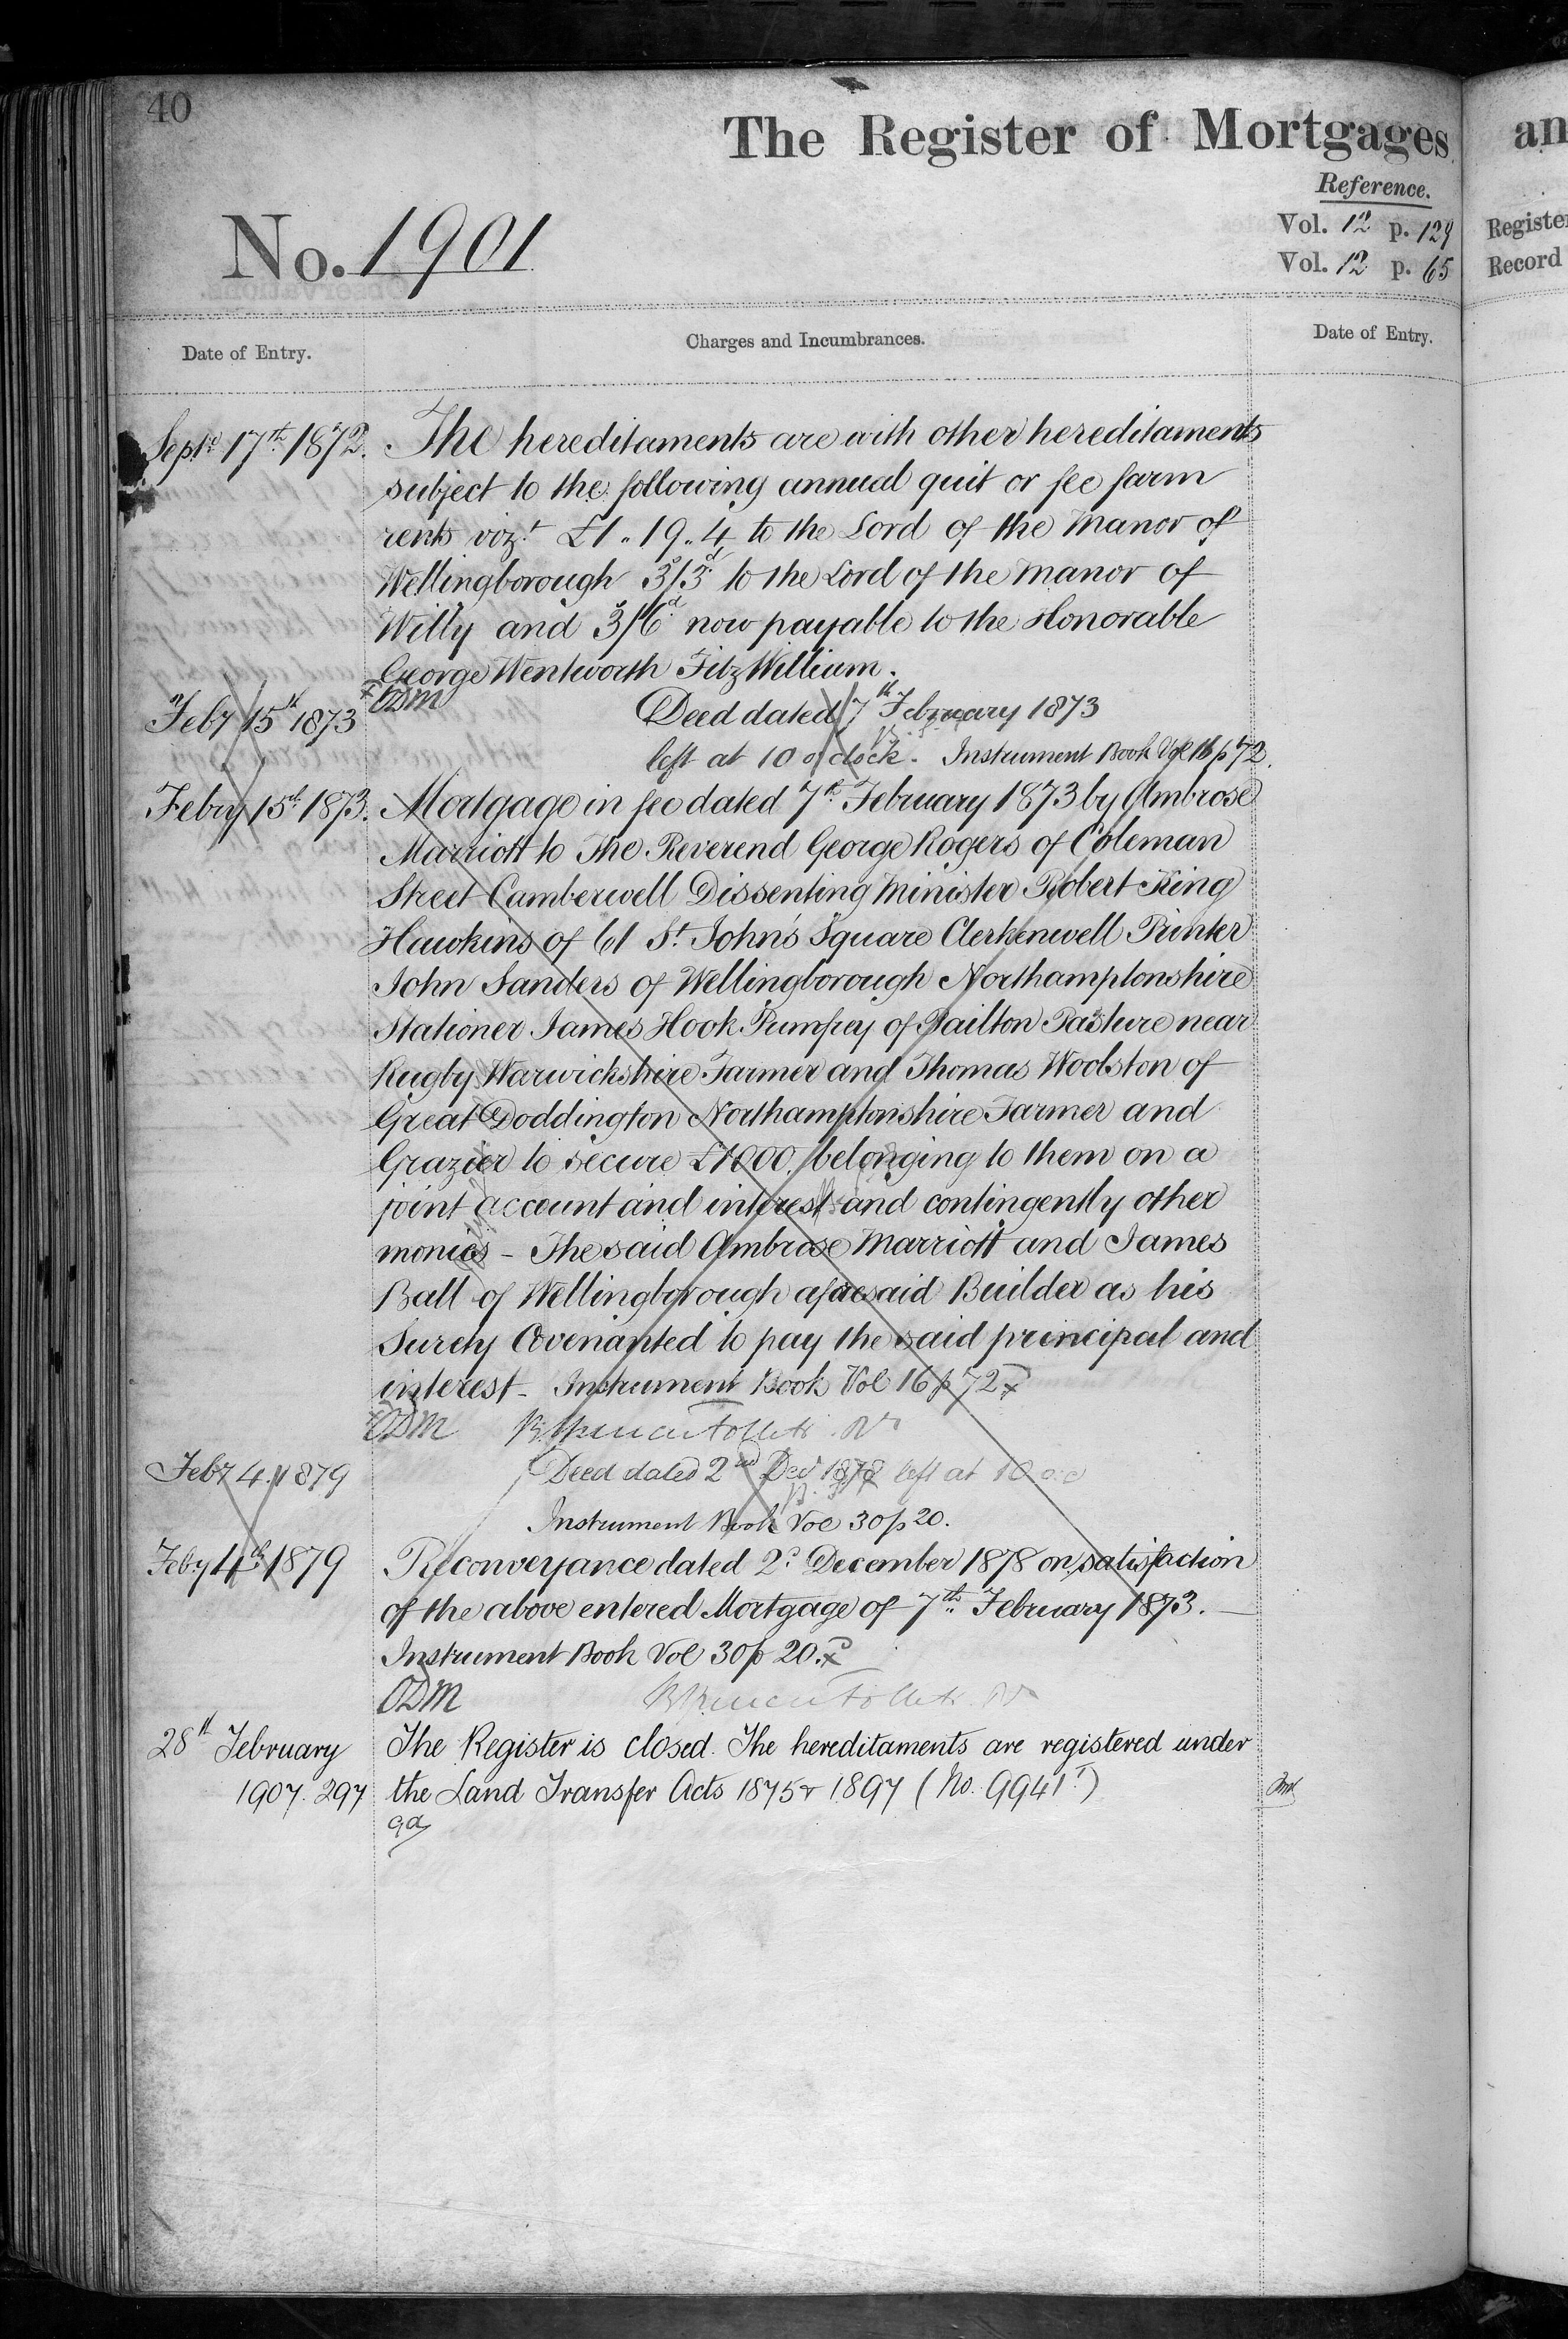 40
The Register of Mortgages
an
Reference.
No. 1901
Vol. 12 p. 129
Register
Vol. 12 p. 65
Record
Date of Entry.
Charges and Incumbrances.
Date of Entry.
Septr 17th 1872. The hereditaments are with other hereditaments
subject to the following annual quit or fee farm
rents vizt £1 „ 19 „ 4 to the Lord of the Manor of
Wellingborough 3s/3d to the Lord of the Manor of
Willy and 3s/6d now payable to the Honorable
George Wentworth FitzWilliam.
ODM
Feby 15th 1873 Deed dated 7th February 1873
left at 10 o'clock. Instrument Book Vol 16 p 72.
Febry 15th 1873. Mortgage in fee dated 7th February 1873 by Ambrose
Marriott to The Reverend George Rogers of Coleman
Street Camberwell Dissenting Minister Robert King
Hawkins of 61 St. John's Square Clerkenwell Printer
John Sanders of Wellingborough Northamptonshire
Stationer James Hook Pumfrey of Pailton Pasture near
Rugby Warwickshire Farmer and Thomas Woolston of
Great Doddington Northamptonshire Farmer and
Grazier to secure £1000 belonging to them on a
joint account and interest and contingently other
monies - The said Ambrose Marriott and James
Ball of Wellingborough aforesaid Builder as his
Surety Covenanted to pay the said principal and
interest - Instrument Book Vol 16 p 72
ODM
Feby 4 1879 Deed dated 2nd Decr 1878 left at 10 o.c
Instrument Book Vol 30 p 20.
Feby 4th 1879 Reconveyance dated 2d December 1878 on satisfaction
of the above entered Mortgage of 7th February 1873.
Instrument Book Vol 30 p 20.
ODM
28th February The Register is closed. The hereditaments are registered under
1907. 297 the Land Transfer Acts 1875 & 1897 (No. 9941)